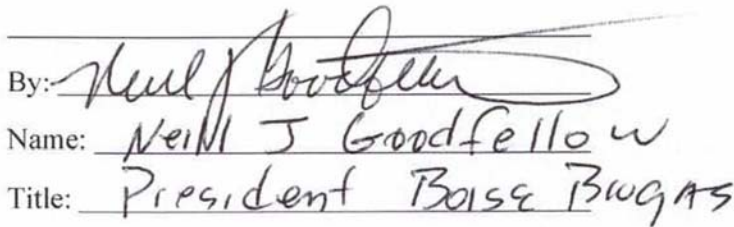 By: Neil J Goodfellow
Name: Neill J Goodfellow
Title: President Boise Biogas